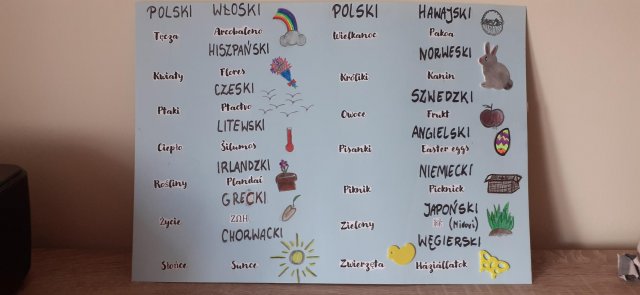 POLSKI WŁOSKI
Tęcza Arcobaleno
HISZPAŃSKI
Kwiaty Flores
CZESKI
Ptaki Ptactvo
LITEWSKI
Ciepło Šilumos
IRLANDZKI
Rośliny Plandaí
GRECKI
Życie ΖΩΗ
CHORWACKI
Słońce Sunce
POLSKI HAWAJSKI
Wielkanoc Pakoa
NORWESKI
Króliki Kanin
SZWEDZKI
Owoce Frukt
ANGIELSKI
Pisanki Easter eggs
NIEMIECKI
Piknik Picknick
JAPOŃSKI
Zielony (Midori)
WĘGIERSKI
Zwierzęta Háziállatok